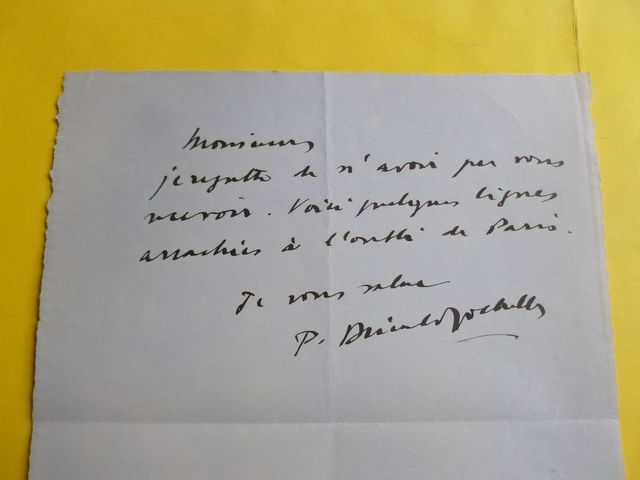 Monsieur,
je regrette de n'avoir pu vous
recevoir. Voici quelques lignes
arrachées à l'oubli de Paris.
Je vous salue
P. Drieu la Rochelle